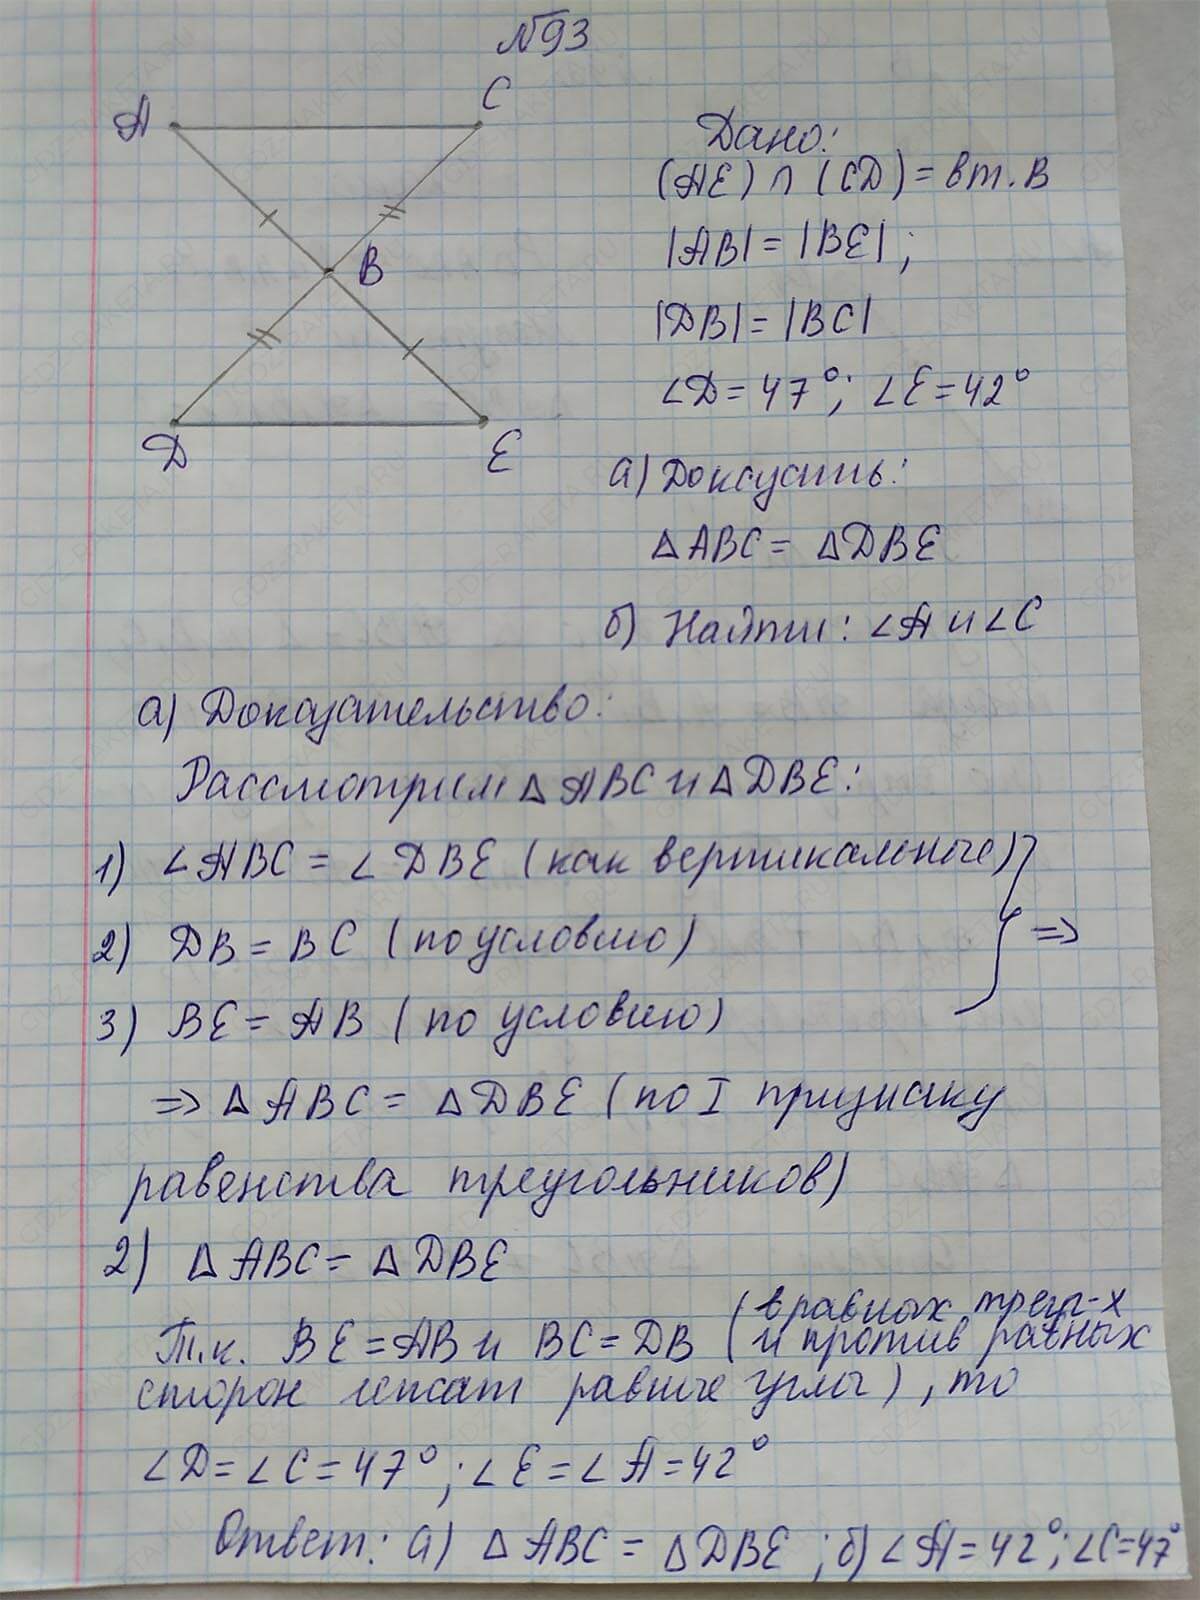 №93
A
C
B
D
E
Дано:
(AE) ∩ (CD) = в т. B
|AB| = |BE| ;
|DB| = |BC|
∠D = 47°; ∠E = 42°
а) Доказать:
△ABC = △DBE
б) Найти: ∠A и ∠C
а) Доказательство:
Рассмотрим △ABC и △DBE:
1) ∠ABC = ∠DBE (как вертикальные)
2) DB = BC (по условию)
3) BE = AB (по условию)
} =>
=> △ABC = △DBE (по I признаку
равенства треугольников)
2) △ABC = △DBE
Т.к. BE = AB и BC = DB (в равных треуг-х
и против равных
сторон лежат равные углы), то
∠D = ∠C = 47°; ∠E = ∠A = 42°
Ответ: а) △ABC = △DBE ; б) ∠A = 42°; ∠C = 47°